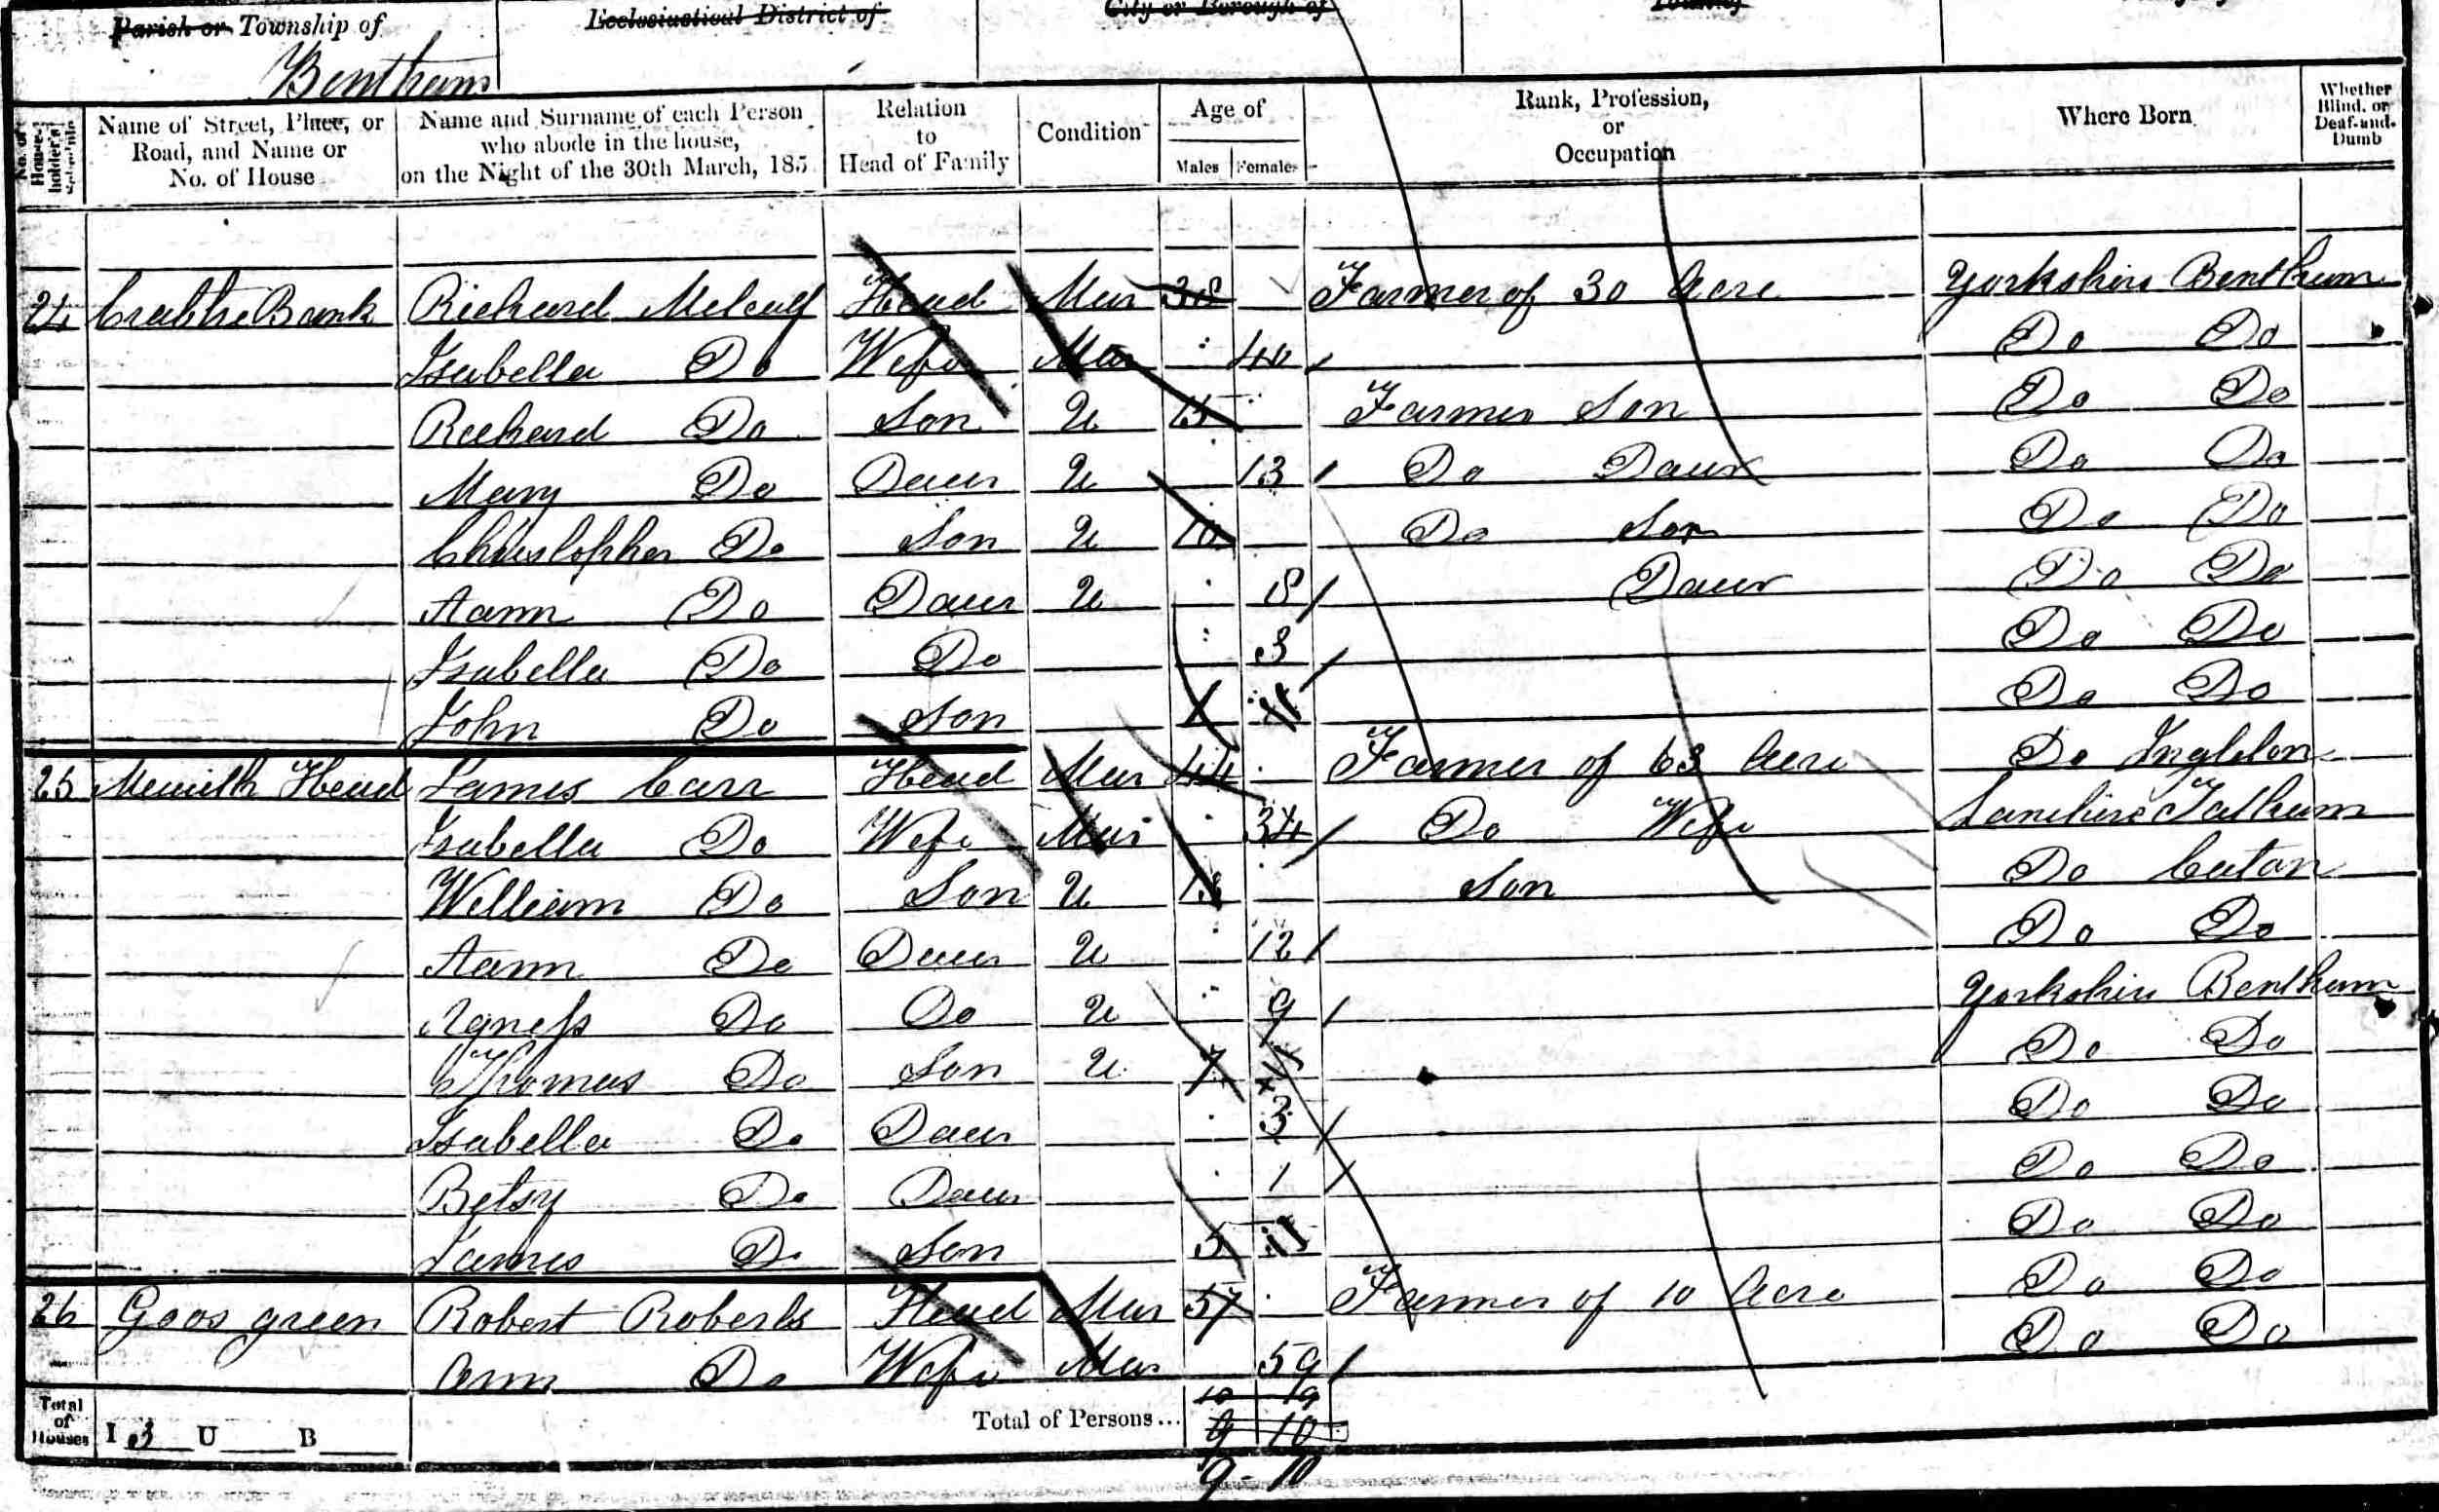 Parish or Township of
Ecclesiastical District of
City or Borough of
Bentham
No. of House-holder's Schedule
Name of Street, Place, or Road, and Name or No. of House
Name and Surname of each Person who abode in the house, on the Night of the 30th March, 185
Relation to Head of Family
Condition
Age of
Males Females
Rank, Profession, or Occupation
Where Born
Whether Blind, or Deaf-and-Dumb
24 Crabtre Bank Richard Metcalf Head Mar 38 Farmer of 30 Acre Yorkshire Bentham
Isabella Do Wife Mar 40 Do Do
Richard Do Son U 15 Farmer Son Do Do
Mary Do Daur U 13 Do Daur Do Do
Christopher Do Son U 10 Do Son Do Do
Aann Do Daur U 8 Daur Do Do
Isabella Do Do 3 Do Do
John Do Son 1 Do Do
25 Mewith Head James Carr Head Mar 44 Farmer of 63 Acre Do Ingleton
Isabella Do Wife Mar 34 Do Wife Lanchire Tatham
William Do Son U 13 Son Do Caton
Aann Do Daur U 12 Do Do
Agness Do Do U 9 Yorkshire Bentham
Thomas Do Son U 7 Do Do
Isabella Do Daur 3 Do Do
Betsy Do Daur 1 Do Do
James Do Son 5 Do Do
26 Goos green Robert Roberts Head Mar 57 Farmer of 10 Acre Do Do
Ann Do Wife Mar 59 Do Do
Total of Houses I 3 U B
Total of Persons... 9 10
9 - 10